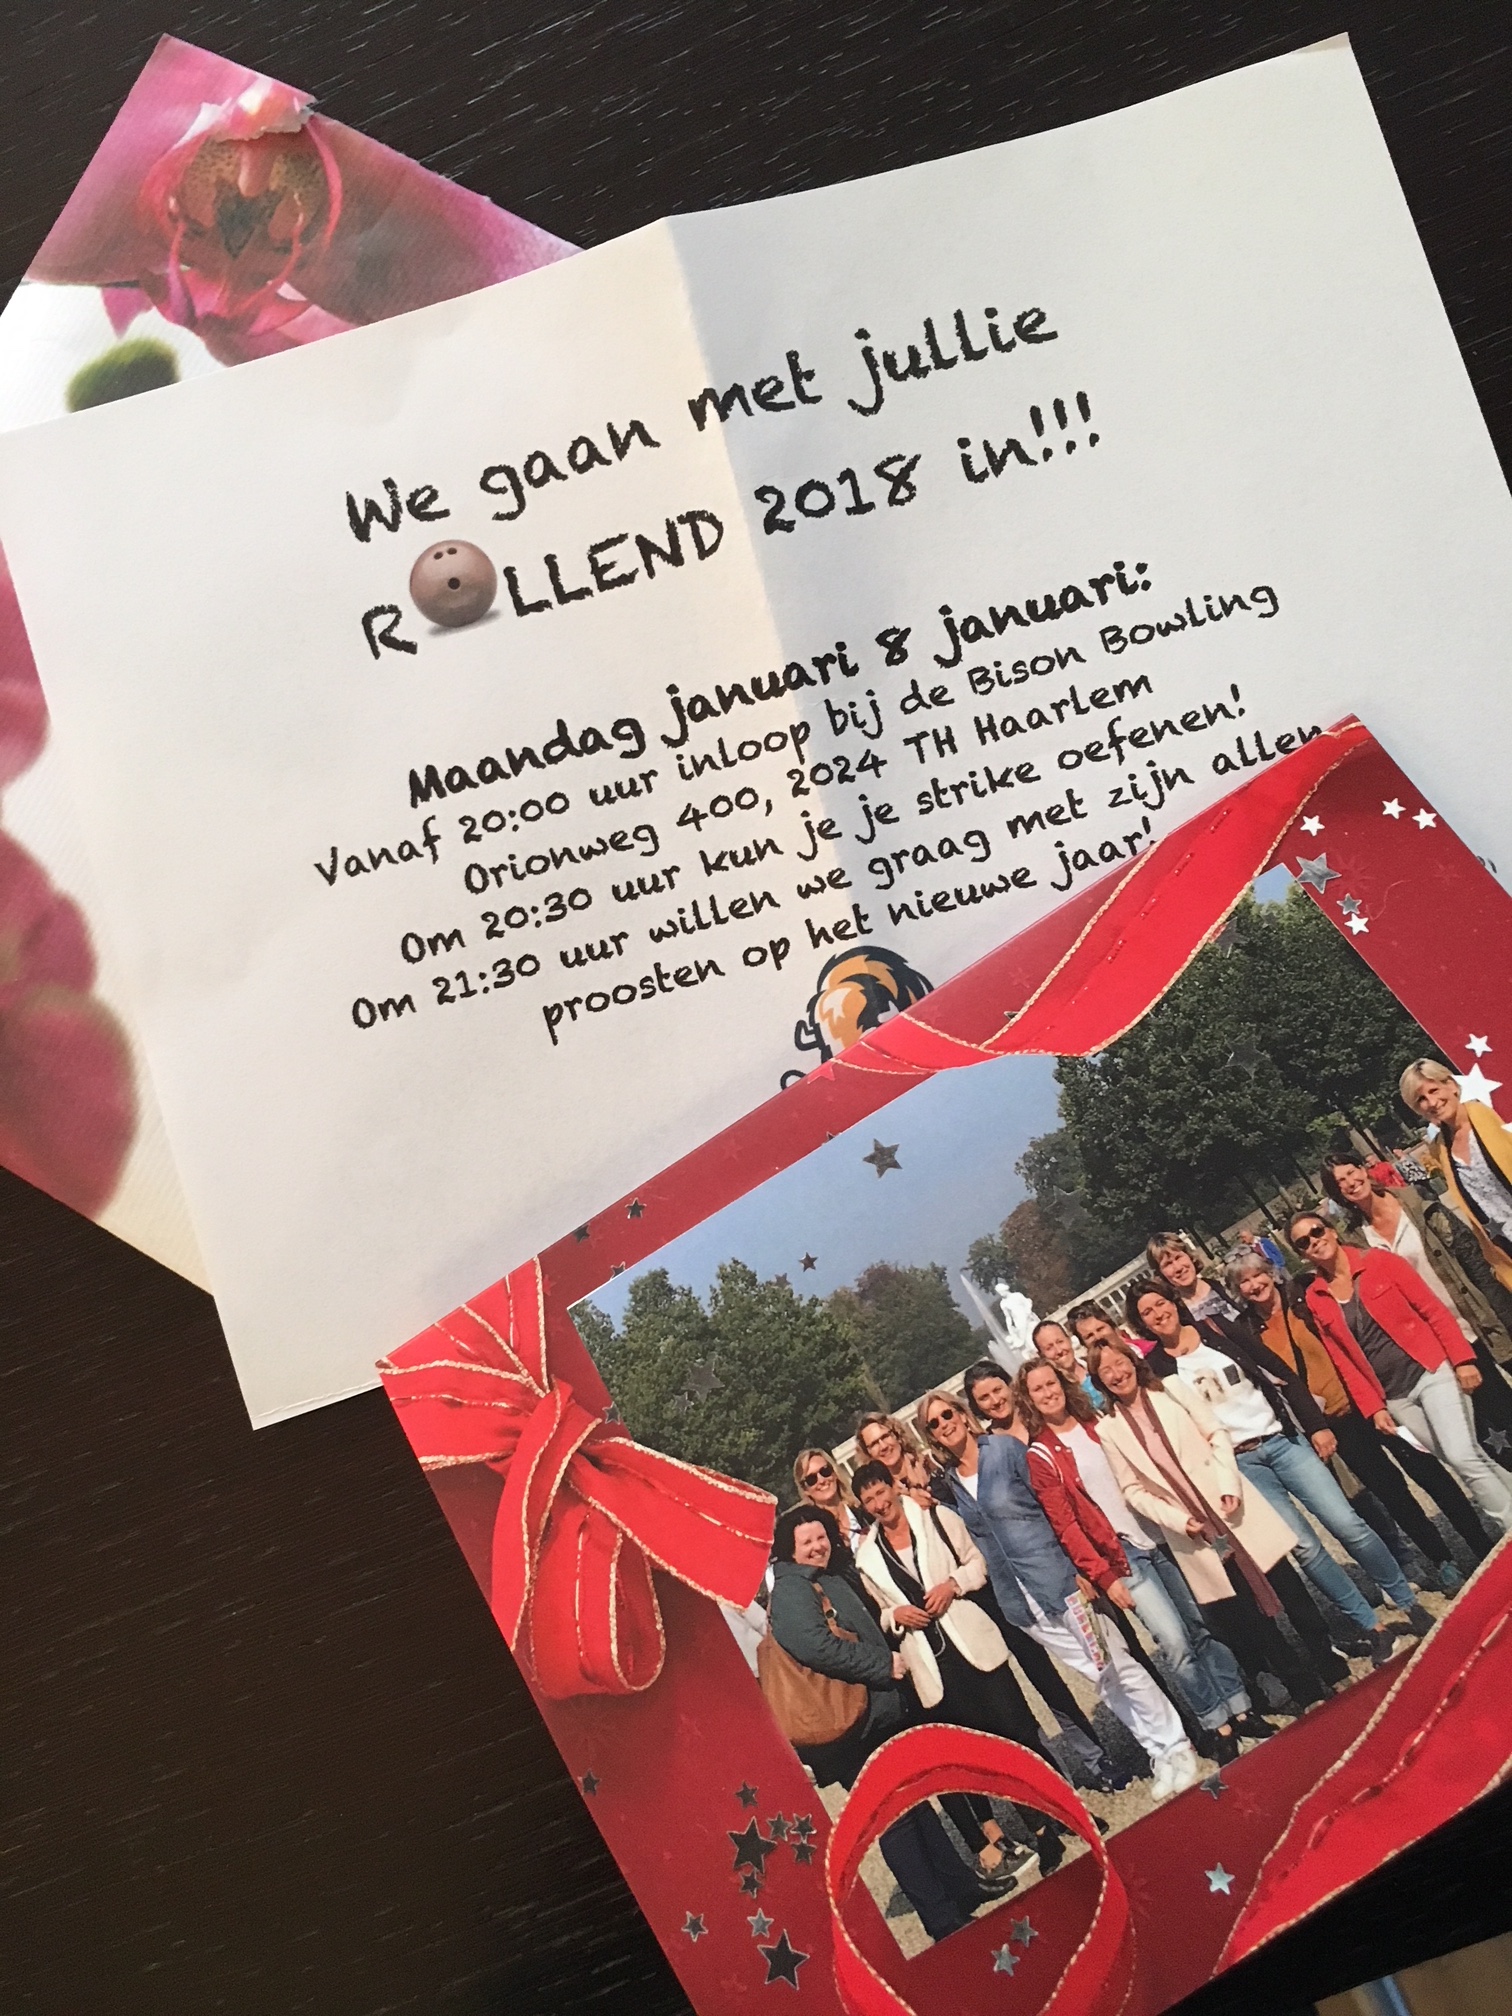 We gaan met jullie
ROLLEND 2018 in!!!
Maandag januari 8 januari:
Vanaf 20:00 uur inloop bij de Bison Bowling
Orionweg 400, 2024 TH Haarlem
Om 20:30 uur kun je je strike oefenen!
Om 21:30 uur willen we graag met zijn allen
proosten op het nieuwe jaar!